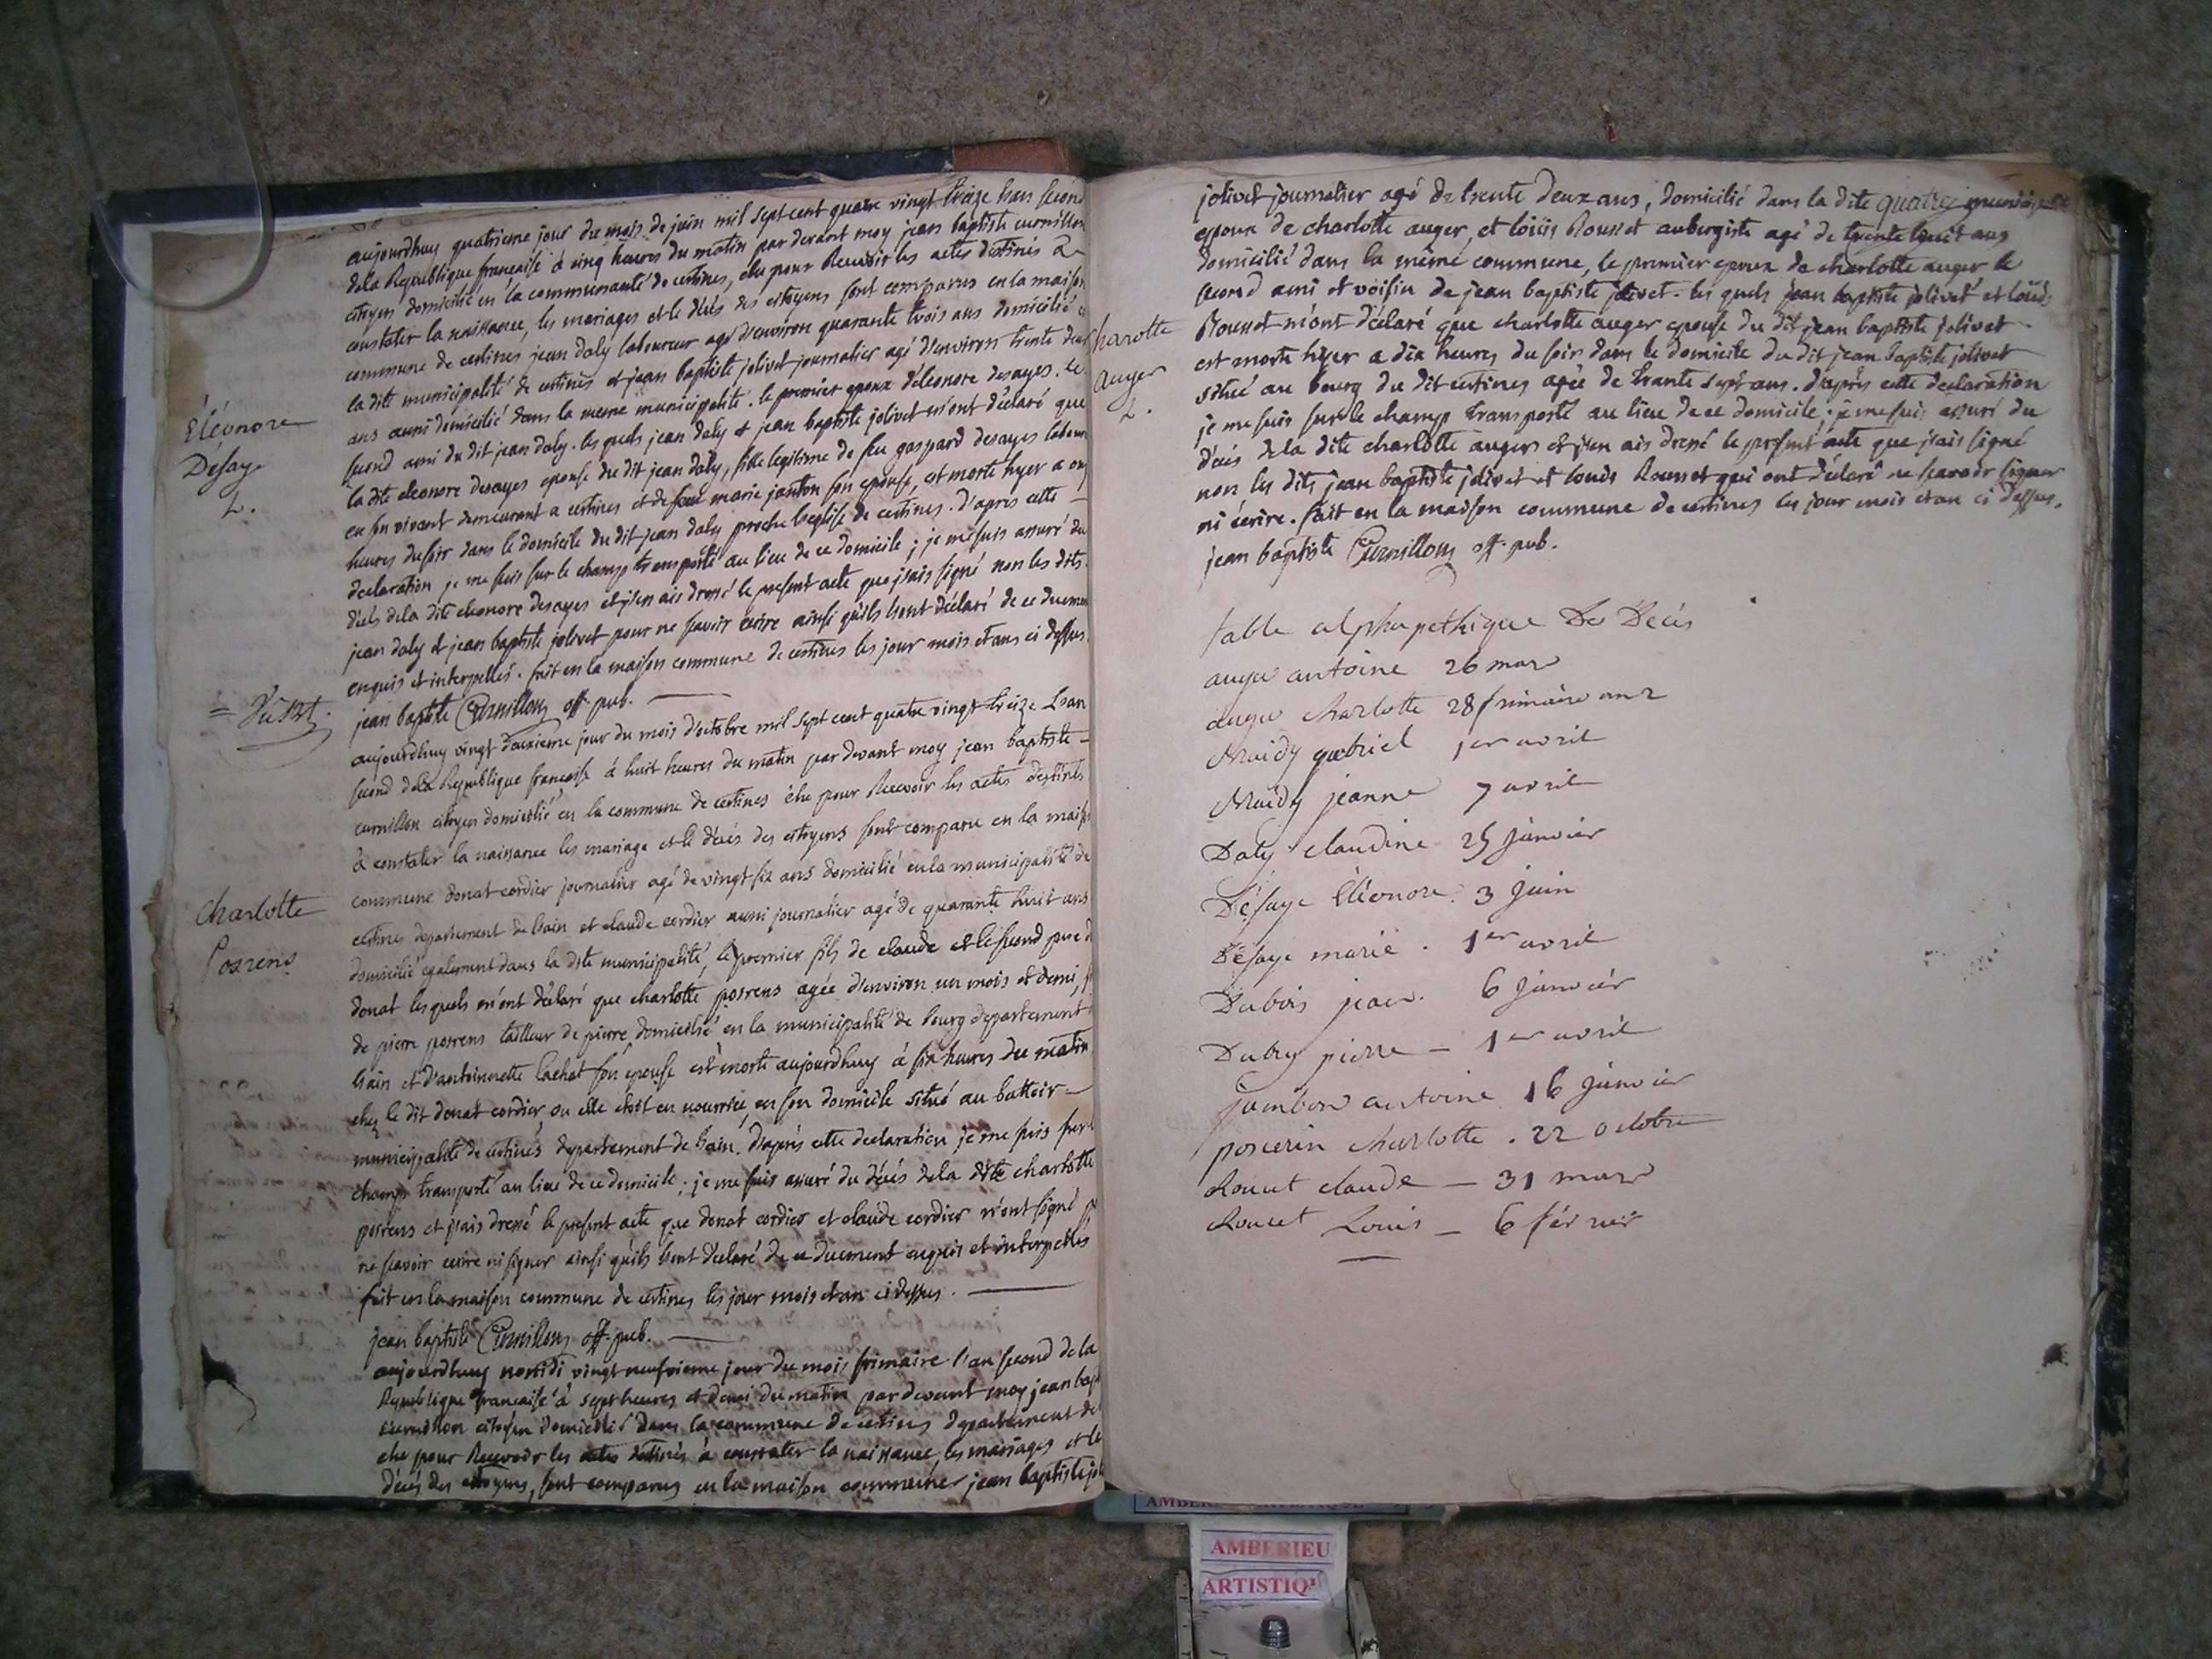 aujourdhuy quatrieme jour du mois de juin mil sept cent quatre vingt treize l'an second
de la Republique française à cinq heures du matin par devant moy jean baptiste curnillon
citoyen domicilié en la communauté de certines, élu pour Recevoir les actes destinés à
constater la naissance, les mariages et le décés des citoyens sont comparus en la maison
commune de certines jean daly laboureur agé d'environ quarante trois ans domicilié
la dite municipalité de certines et jean baptiste jolivet journalier agé d'environ trente deux
ans aussi domicilié dans la meme municipalité. le premier epoux d'éléonore desayes. le
second ami du dit jean daly. les quels jean daly et jean baptiste jolivet m'ont déclaré que
la dite eleonore desayes epouse du dit jean daly, fille legitime de feu gaspard desayes
en son vivant demeurant a certines et de marie janton son epouse, est morte hyer a
heures du soir dans le domicile du dit jean daly proche l'eglise de certines. d'apres cette
declaration je me suis sur le champ transporté au lieu de ce domicile ; je me suis assuré du
décés de la dite eleonore desayes et j'en ais dressé le present acte que j'ais signé non les dits
jean daly et jean baptiste jolivet pour ne savoir ecrire ainsi qu'ils l'ont déclaré de ce duement
enquis et interpellés. fait en la maison commune de certines les jour mois et ans ci dessus.
jean baptiste Curnillon off. pub.
Éléonore
Désaye
L.
aujourdhuy vingt deuxieme jour du mois d'octobre mil sept cent quatre vingt treize L'an
second de la Republique française à huit heures du matin par devant moy jean baptiste
curnillon citoyen domicilié en la commune de certines élu pour Recevoir les actes destinés
à constater la naissance les mariage et le décés des citoyens sont comparu en la maison
commune donat cordier journalier agé de vingt six ans domicilié en la municipalité de
certines departement de l'ain et claude cordier aussi journalier agé de quarante huit ans
domicilié egalement dans la dite municipalité, le premier fils de claude et le second pere d
donat lesquels m'ont déclaré que charlotte posrens agée d'environ un mois et demi,
de pierre posrens tailleur de pierre domicilié en la municipalité de bourg departement
l'ain et d'antoinette lachat son epouse est morte aujourdhuy à six heures du matin
chez le dit donat cordier ou elle etoit en nourrice en son domicile situé au battoir
municipalité de certines departement de l'ain. d'après cette declaration je me suis sur le
champ transporté au lieu de ce domicile ; je me suis assuré du décés de la dite charlotte
posrens et j'ais dressé le present acte que donat cordier et claude cordier n'ont signé
ne scavoir ecrire ni signer ainsi qu'ils l'ont déclaré de ce duement enquis et interpellés
fait en la maison commune de certines les jour mois et an ci dessus.
jean baptiste Curnillon off. pub.
Charlotte
Posrens
aujourdhuy nonidi vingt neufvieme jour du mois frimaire l'an second de la
Republique française à sept heures et demi du matin par devant moy jean bap
curnillon citoyen domicilié dans la commune de certines departement de
elu pour Recevoir les actes destinés à constater la naissance, les mariages et le
décés des citoyens, sont comparus en la maison commune jean baptiste jo
Charotte
Auger
L.
jolivet journalier agé de trente deux ans, domicilié dans la dite
epoux de charlotte auger, et loüis Rousset aubergiste agé de trente huit ans
domicilié dans la même commune, le premier epoux de charlotte auger le
second ami et voisin de jean baptiste jolivet. les quels jean baptiste jolivet et loüis
Rousset m'ont déclaré que charlotte auger epouse du dit jean baptiste jolivet
est morte hyer a dix heures du soir dans le domicile du dit jean baptiste jolivet
situé au bourg du dit certines agée de trante sept ans. d'après cette declaration
je me suis sur le champ transporté au lieu de ce domicile ; je me suis assuré du
décés de la dite charlotte augers et j'en ais dressé le présent acte que j'ais signé
non les dits jean baptiste jolivet et louis Rousset qui ont déclaré ne scavoir signer
ni écrire. fait en la maison commune de certines les jour mois et an ci dessus.
jean baptiste Curnillon off. pub.
table alphapethique De Décés
auger antoine 26 mars
auger charlotte 28 frimaire an 2
gabriel 1er avril
jeanne 7 avril
Daly claudine 25 janvier
Désaye Eléonore. 3 juin
Désaye marie. 1er avril
Dubois jean. 6 janvier
Dubry pierre - 1er avril
jambon antoine 16 janvier
poscerin charlotte. 22 octobre
Roucet claude - 31 mars
Roucet Louis - 6 février
AMBERIEU
ARTISTIQ